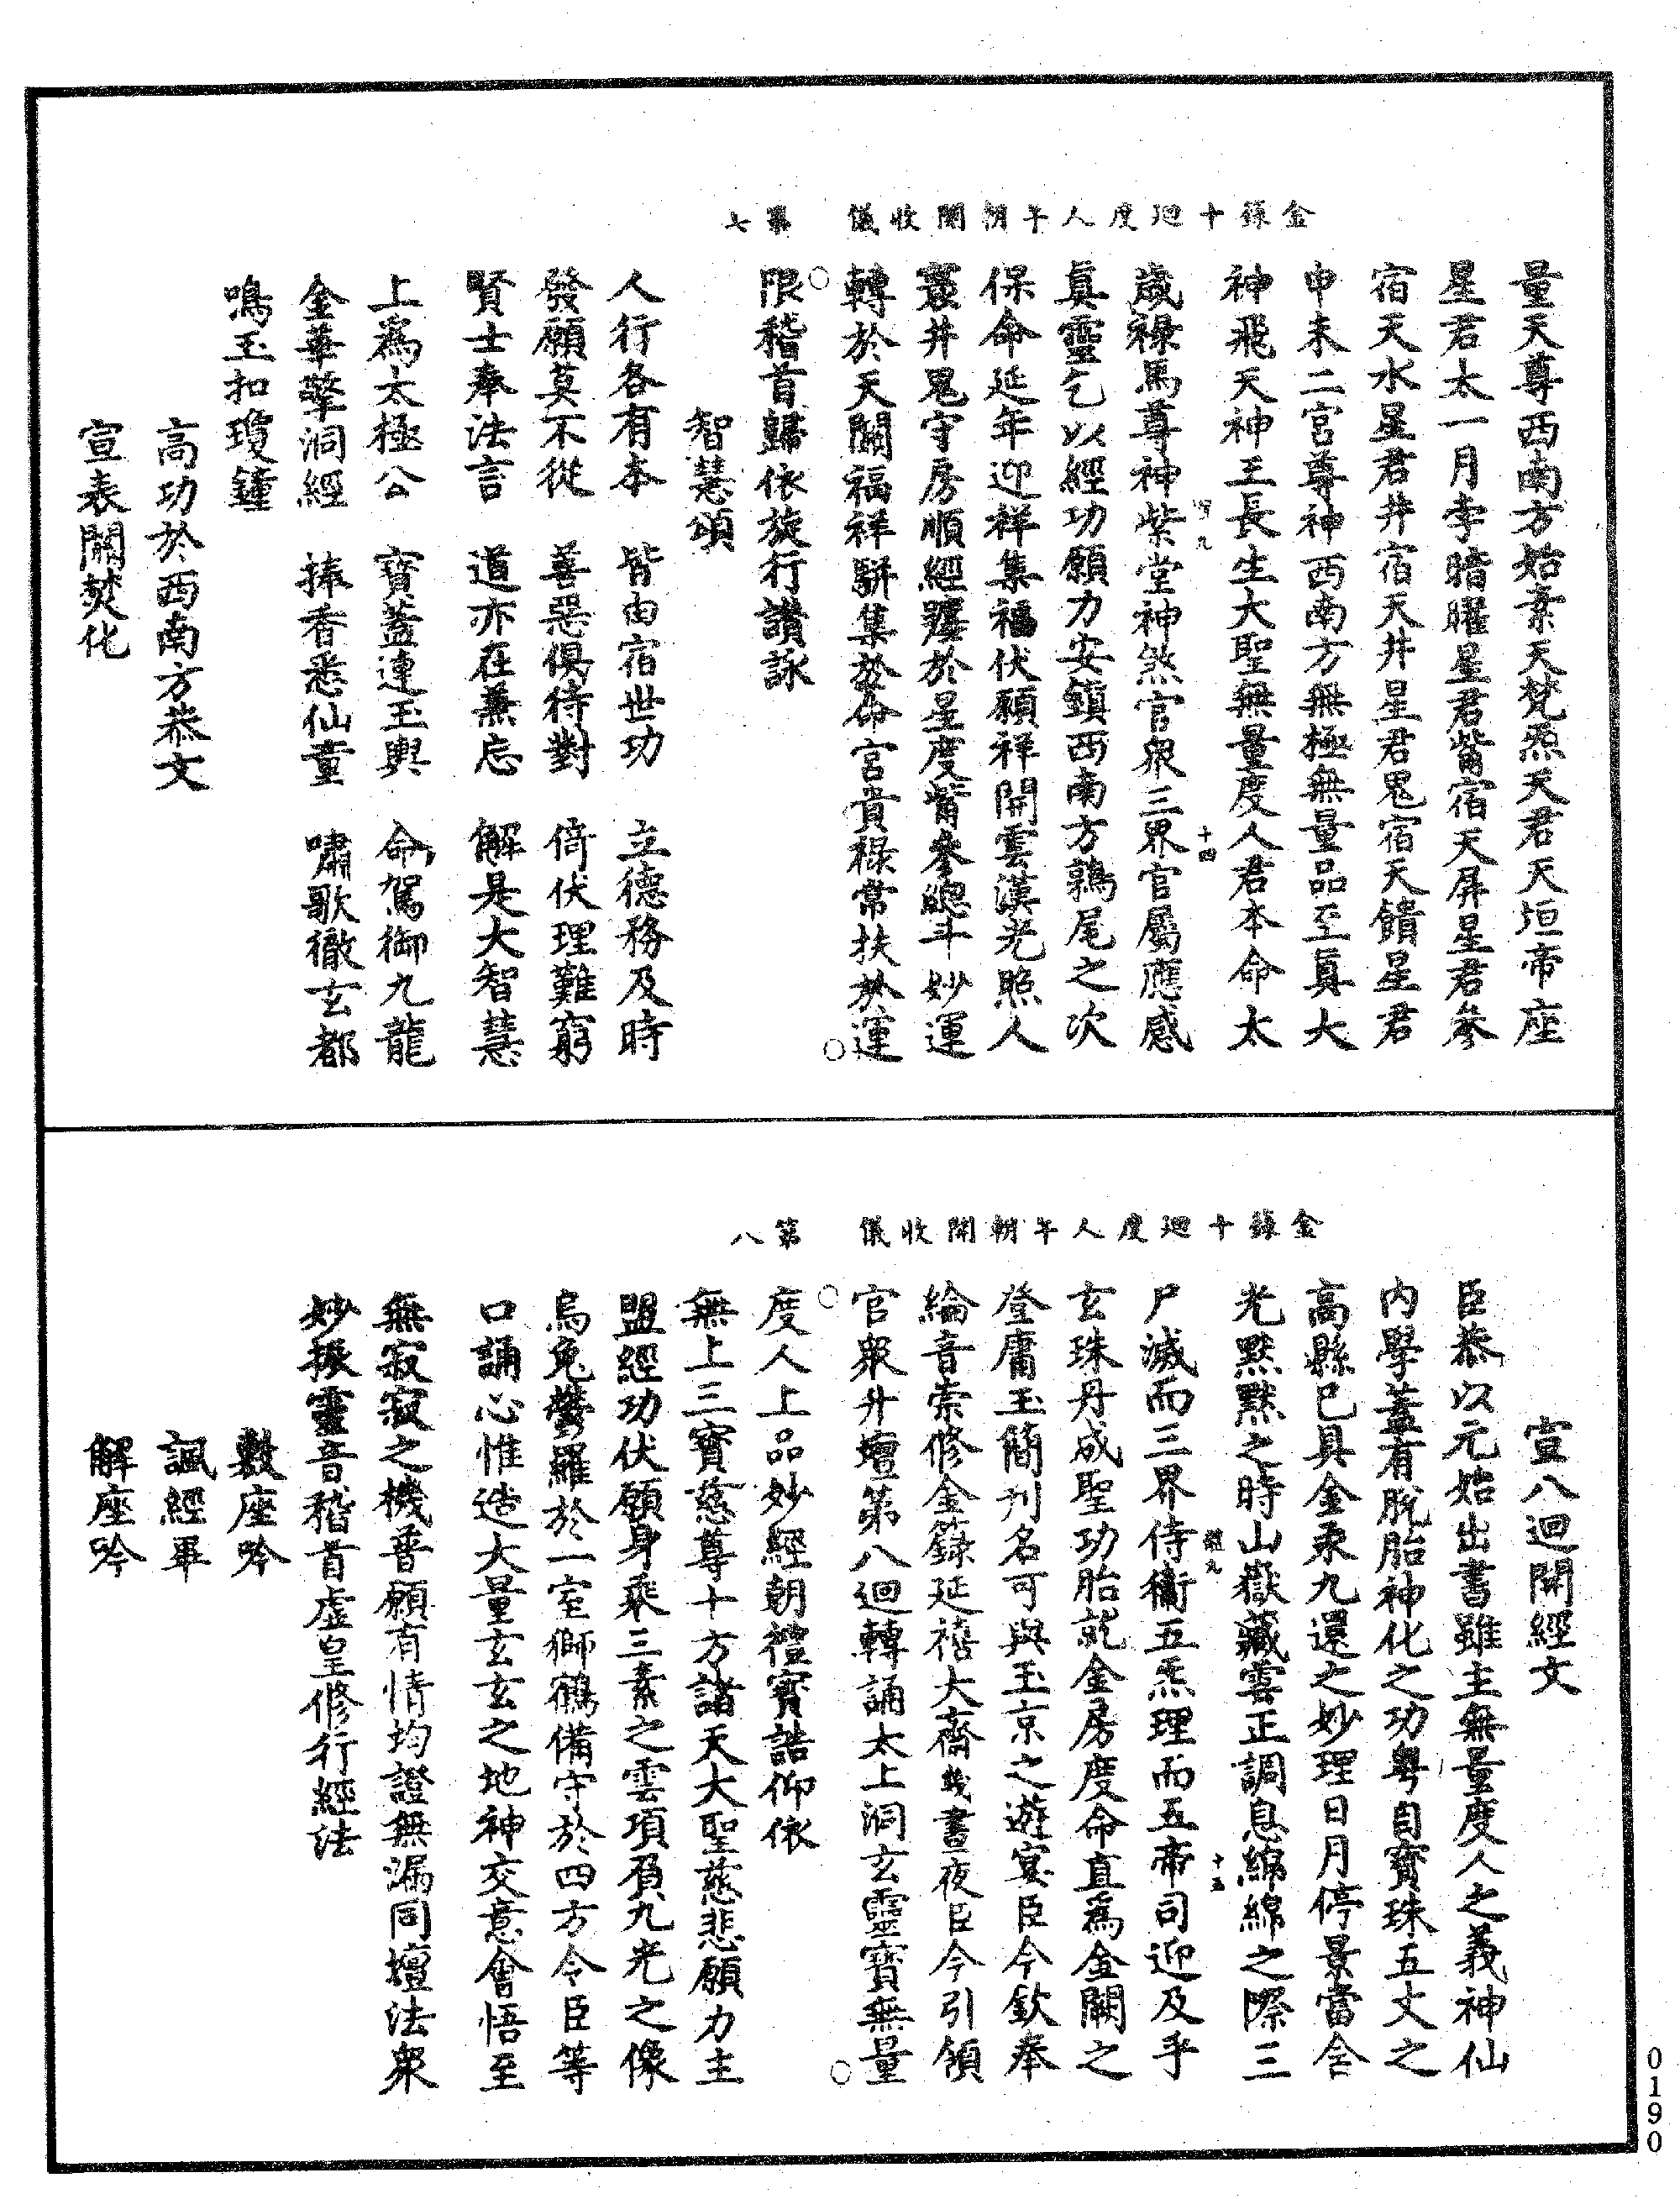 金籙十迴度人午朝開收儀　第七
量天尊西南方始素天梵炁天君天垣帝座
星君太一月孛暗曜星君觜宿天屏星君參
宿天水星君井宿天井星君鬼宿天饋星君
申未二宮尊神西南方無極無量品至真大
神飛天神王長生大聖無量度人君本命太
十四
歲祿馬尊神紫堂神煞官衆三界官屬應感
真靈乞以經功願力安鎮西南方鶉尾之次
保命延年迎祥集福伏願祥開雲漢光照人
寰井鬼守房順經躔於星度觜參總斗妙運
轉於天關福祥駢集於命宮貴祿常扶於運
限稽首歸依旋行讚詠
智慧頌
人行各有本　皆由宿世功　立德務及時
發願莫不從　善惡俱待對　倚伏理難窮
賢士奉法言　道亦在兼忘　解是大智慧
上爲太極公　寶蓋連玉輿　命駕御九龍
金華擎洞經　捧香悉仙童　嘯歌徹玄都
鳴玉扣瓊鐘
高功於西南方恭文
宣表關焚化
金籙十迴度人午朝開收儀　第八
宣八迴開經文
臣恭以元始出書雖主無量度人之義神仙
内學蓋有脫胎神化之功粤自寶珠五丈之
高縣已具金汞九還之妙理日月停景當含
光黙黙之時山嶽藏雲正調息綿綿之際三
十五
尸滅而三界侍衞五炁理而五帝司迎及乎
玄珠丹成聖功胎就金房度命直爲金闕之
登庸玉簡刋名可與玉京之遊宴臣今欽奉
綸音崇修金籙延禧大齋幾晝夜臣今引領
官衆升壇第八迴轉誦太上洞玄靈寶無量
度人上品妙經朝禮寶誥仰依
無上三寶慈尊十方諸天大聖慈悲願力主
盟經功伏願身乘三素之雲項負九光之像
烏兔鬱羅於一室獅鶴備守於四方令臣等
口誦心惟造大量玄玄之地神交意會悟至
無寂寂之機普願有情均證無漏同壇法衆
妙振靈音稽首虛皇修行經法
敷座吟
諷經畢
解座吟
0190